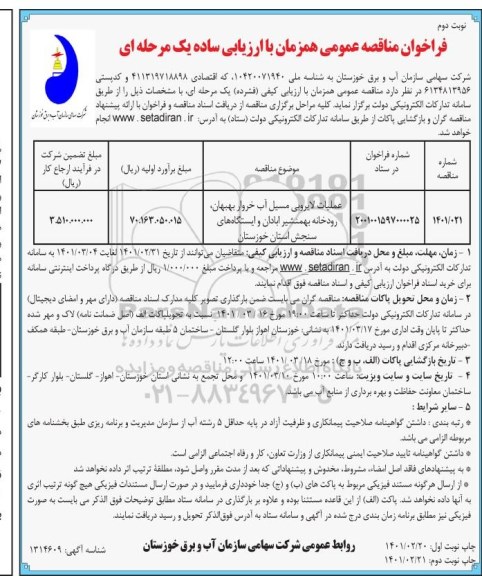 نوبت دوم
فراخوان مناقصه عمومی همزمان با ارزیابی ساده یک مرحله ای
شرکت سهامی سازمان آب و برق خوزستان به شناسه ملی ۱۰۴۲۰۰۷۱۹۴۰، کد اقتصادی ۴۱۱۳۱۹۷۱۸۸۹۸ و کدپستی
۶۱۳۴۸۱۳۹۵۶ در نظر دارد مناقصه عمومی همزمان با ارزیابی کیفی (فشرده) یک مرحله ای، با مشخصات ذیل را از طریق
سامانه تدارکات الکترونیکی دولت برگزار نماید. کلیه مراحل برگزاری مناقصه از دریافت اسناد مناقصه و فراخوان با ارائه پیشنهاد
مناقصه گران و بازگشایی پاکات از طریق سامانه تدارکات الکترونیکی دولت (ستاد) به آدرس: www . setadiran . ir انجام
خواهد شد.
شماره مناقصه
شماره فراخوان در ستاد
موضوع مناقصه
مبلغ برآورد اولیه (ریال)
مبلغ تضمین شرکت در فرآیند ارجاع کار (ریال)
۱۴۰۱/۰۲۱
۲۰۰۱۰۰۱۵۹۷۰۰۰۰۲۵
عملیات لایروبی مسیل آب خروار بهبهان،
رودخانه بهمنشیر آبادان و ایستگاههای
سنجش استان خوزستان
۷۰.۱۶۳.۵۰۰.۱۵
۳.۵۱۰.۰۰۰.۰۰۰
۱ - زمان، مهلت، مبلغ و محل دریافت اسناد مناقصه و ارزیابی کیفی: متقاضیان می‌توانند از تاریخ ۱۴۰۱/۰۲/۳۱ لغایت ۱۴۰۱/۰۳/۰۴ به سامانه
تدارکات الکترونیکی دولت به آدرس www . setadiran . ir مراجعه و با پرداخت مبلغ ۱/۰۰۰/۰۰۰ ریال از طریق درگاه پرداخت اینترنتی سامانه
برای خرید اسناد فراخوان ارزیابی کیفی و مناقصه فوق اقدام نمایند.
۲ - زمان و محل تحویل پاکات مناقصه: مناقصه گران می بایست ضمن بارگذاری تصویر کلیه مدارک اسناد مناقصه (دارای مهر و امضای دیجیتال)
در سامانه تدارکات الکترونیکی دولت حداکثر تا ساعت ۱۹:۰۰ مورخ ۱۶ /۰۳ /۱۴۰۱ نسبت به تحویل پاکات الف (اصل ضمانت نامه) لاک و مهر شده
حداکثر تا پایان وقت اداری مورخ ۱۴۰۱/۰۳/۱۷ به نشانی: خوزستان اهواز بلوار گلستان - ساختمان ۵ طبقه سازمان آب و برق خوزستان- طبقه همکف
-دبیرخانه مرکزی اقدام و رسید دریافت دارند.
۳ - تاریخ بازگشایی پاکات (الف، ب و ج) : مورخ ۱۴۰۱/۰۳/۱۸ ساعت ۱۲:۰۰
۴ - تاریخ سایت و سایت ویزیت: ساعت ۱۰:۰۰ مورخ ۱۴۰۱/۰۳/۱۰ و محل تجمع به نشانی استان خوزستان- اهواز- گلستان- بلوار کارگر-
ساختمان معاونت حفاظت و بهره برداری از منابع آب می باشد.
۵ - سایر شرایط :
* رتبه بندی : داشتن گواهینامه صلاحیت پیمانکاری و ظرفیت آزاد در پایه حداقل ۵ رشته آب از سازمان مدیریت و برنامه ریزی طبق بخشنامه های
مربوطه الزامی می باشد.
* داشتن گواهینامه تایید صلاحیت ایمنی پیمانکاری از وزارت تعاون، کار و رفاه اجتماعی الزامی است.
* به پیشنهادهای فاقد امضاء، مشروط، مخدوش و پیشنهاداتی که بعد از مدت مقرر واصل شود، مطلقاً ترتیب اثر داده نخواهد شد
* از ارسال هرگونه مستند فیزیکی مربوط به پاکت های (ب) و (ج) جدا خودداری فرمایید و در صورت ارسال مستندات فیزیکی هیچ گونه ترتیب اثری
به آنها داده نخواهد شد. پاکت (الف) از این قاعده مستثنا بوده و علاوه بر بارگذاری در سامانه ستاد مطابق توضیحات فوق الذکر می بایست به صورت
فیزیکی نیز مطابق برنامه زمان بندی درج شده در آگهی و سامانه ستاد به آدرس فوق‌الذکر تحویل و رسید دریافت نمایند.
چاپ نوبت اول: ۱۴۰۱/۰۲/۲۰
چاپ نوبت دوم: ۱۴۰۱/۰۲/۲۱
روابط عمومی شرکت سهامی سازمان آب و برق خوزستان
شناسه آگهی: ۱۳۱۴۶۰۹